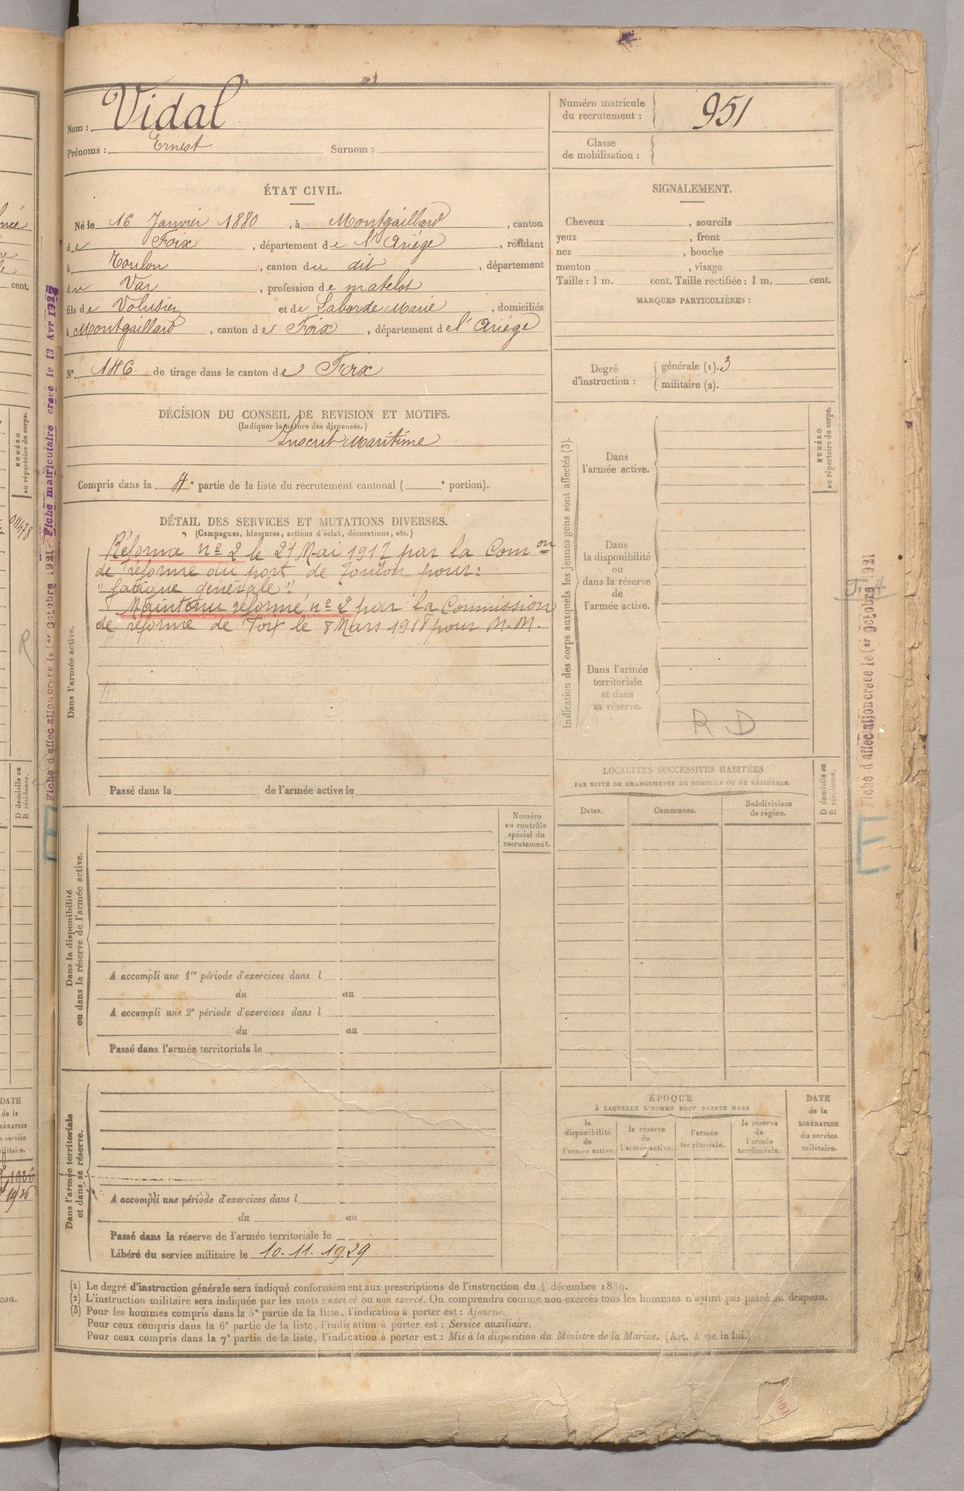 Nom : Vidal
Prénoms : Ernest Surnom :
Numéro matricule
du recrutement : 951
Classe
de mobilisation :
ÉTAT CIVIL.
Né le 16 Janvier 1880, à Montgaillard, canton
de Foix, département de l'Ariège, résidant
à Toulon, canton du dit, département
du Var, profession de matelot
fils de Volusien et de Laborde Marie, domiciliés
à Montgaillard, canton de Foix, département de l'Ariège
N° 146 de tirage dans le canton de Foix
DÉCISION DU CONSEIL DE REVISION ET MOTIFS.
(Indiquer la nature des dispenses.)
Inscrit Maritime
Compris dans la 4e partie de la liste du recrutement cantonal ( e portion).
DÉTAIL DES SERVICES ET MUTATIONS DIVERSES.
(Campagnes, blessures, actions d'éclat, décorations, etc.)
Dans l'armée active.
Réformé n° 2 le 21 Mai 1917 par la Com on
de réforme du port de Toulon pour:
"fatigue générale".
Maintenu réformé n° 2 par la Commission
de réforme de Foix le 8 Mars 1918 pour M.M.
Passé dans la de l'armée active le
Dans la disponibilité
ou dans la réserve de l'armée active.
Numéro
au contrôle
spécial du
recrutement.
A accompli une 1re période d'exercices dans l
du au
A accompli une 2e période d'exercices dans l
du au
Passé dans l'armée territoriale le
Dans l'armée territoriale
et dans sa réserve.
A accompli une période d'exercices dans l
du au
Passé dans la réserve de l'armée territoriale le
Libéré du service militaire le 10.11.1929
SIGNALEMENT.
Cheveux , sourcils
yeux , front
nez , bouche
menton , visage
Taille : 1 m. cent. Taille rectifiée : 1 m. cent.
MARQUES PARTICULIÈRES :
Degré
d'instruction :
générale (1). 3
militaire (2).
Indication des corps auxquels les jeunes gens sont affectés (3).
NUMÉRO
au répertoire du corps.
Dans
l'armée active.
Dans
la disponibilité
ou
dans la réserve
de
l'armée active.
Dans l'armée
territoriale
et dans
sa réserve.
R.D
LOCALITÉS SUCCESSIVES HABITÉES
PAR SUITE DE CHANGEMENTS DE DOMICILE OU DE RÉSIDENCE.
Dates. Communes. Subdivisions
de région.
D domicile ou
R résidence.
ÉPOQUE
À LAQUELLE L'HOMME DOIT PASSER DANS
la
disponibilité
de
l'armée active.
la réserve
de
l'armée active.
l'armée
territoriale.
la réserve
de
l'armée
territoriale.
DATE
de la
LIBÉRATION
du service
militaire.
(1) Le degré d'instruction générale sera indiqué conformément aux prescriptions de l'instruction du 4 décembre 1889.
(2) L'instruction militaire sera indiquée par les mots : exercé ou non exercé. On comprendra comme non exercés tous les hommes n'ayant pas passé au drapeau.
(3) Pour les hommes compris dans la 5e partie de la liste, l'indication à porter est : Ajourné.
Pour ceux compris dans la 6e partie de la liste, l'indication à porter est : Service auxiliaire.
Pour ceux compris dans la 7e partie de la liste, l'indication à porter est : Mis à la disposition du Ministre de la Marine. (Art. 4 de la loi.)
Fiche d'affectation créée le 1er Octobre 1921
E
Fiche d'affectation créée le 1er Octobre 1921
Fiche matriculaire créée le 13 Avr 1927
R
cent.
NUMÉRO
au répertoire du corps.
D domicile ou
R résidence.
DATE
de la
LIBÉRATION
du service
militaire.